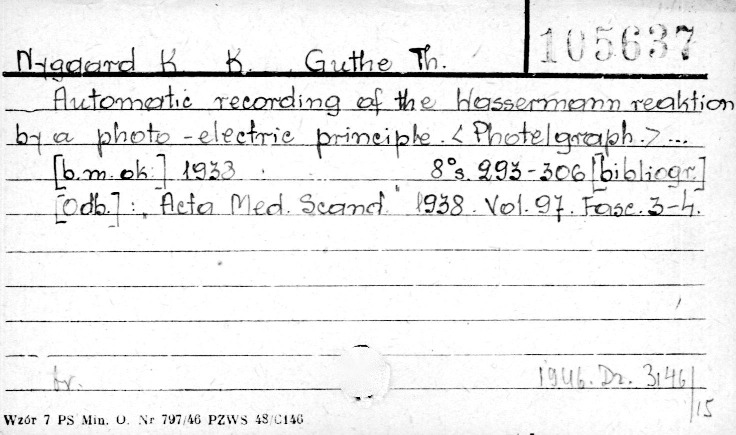 105637
Nygaard K. K. Guthe Th.
Automatic recording of the Wassermann reaktion
by a photo-electric principle. <Photelgraph.> ...
[b.m. ok.] 1933 8° s. 293-306 [bibliogr.]
[Odb.]: "Acta Med. Scand." 1938. Vol. 97. Fasc. 3-4.
br. 1946. Dz. 3146/15
Wzór 7 PS Min. O. Nr 797/46 PZWS 48/C146